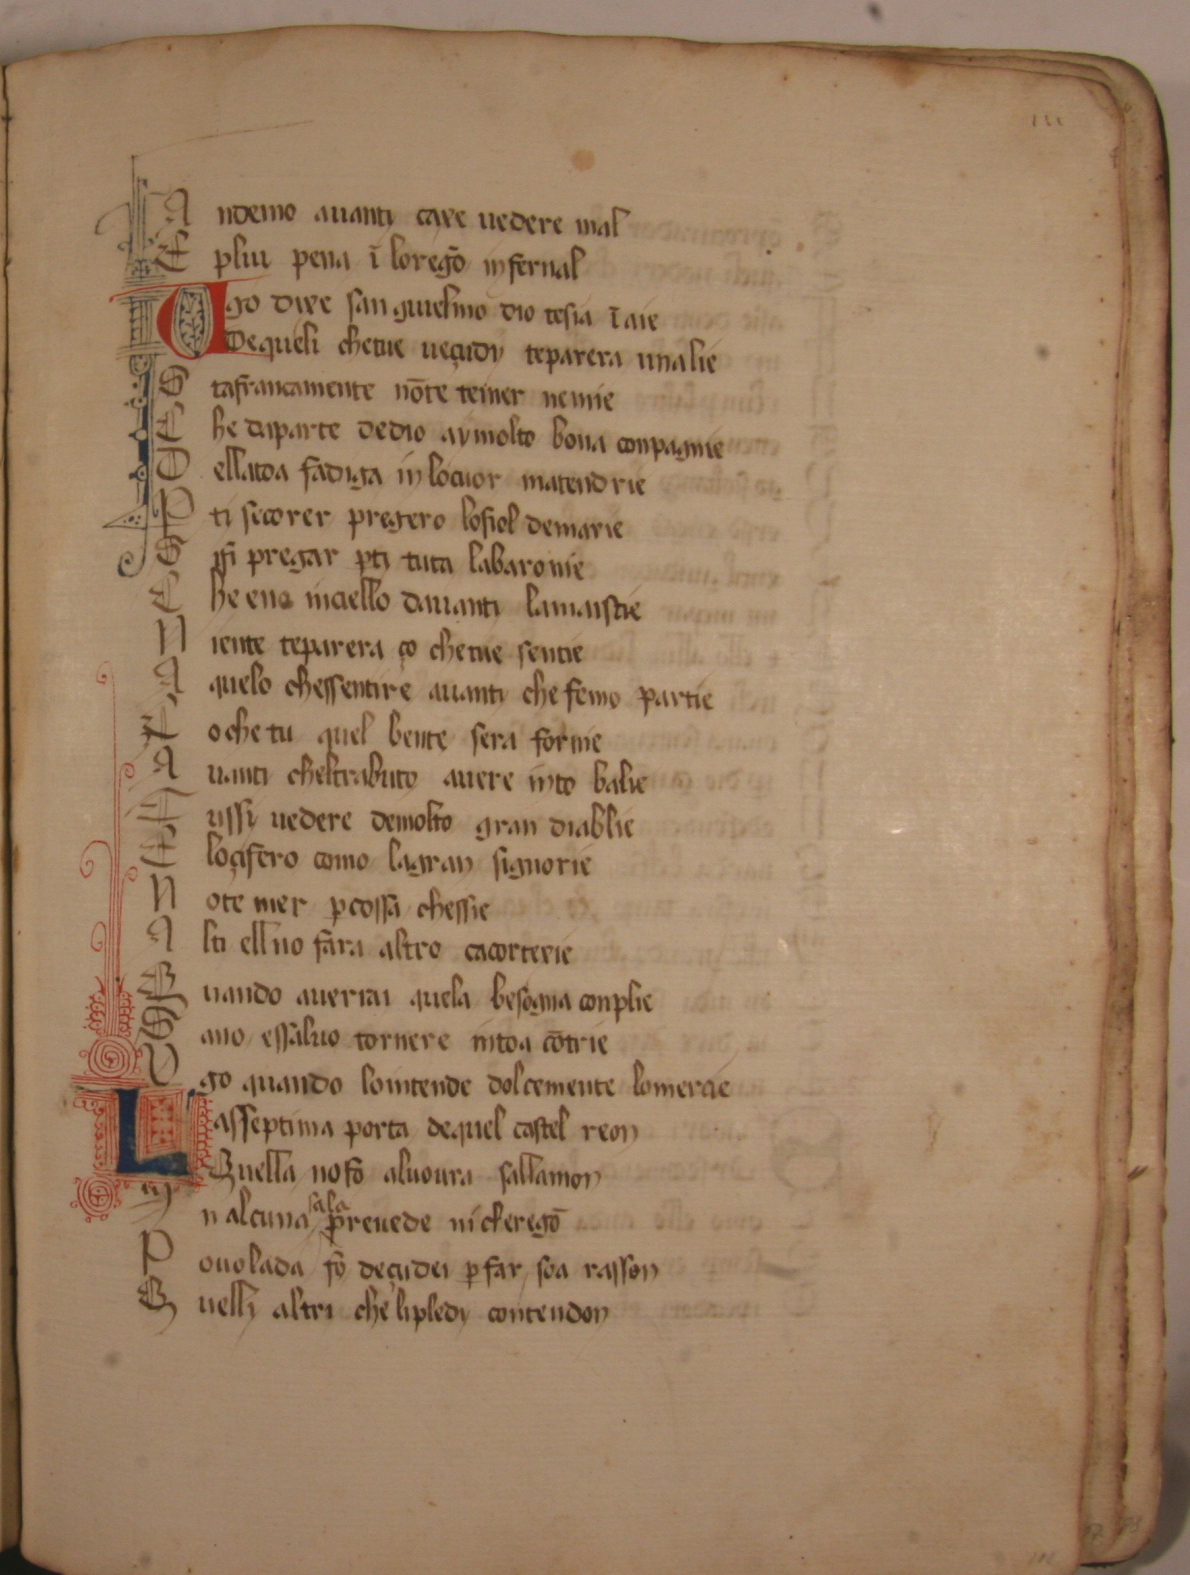 A ndemo auanti caxe uedere mal
E pluu pena ī loregō infernal
U go dixe san guielmo dio tesia ī aie
De queli chetue ueçudi teparera unalie
S tafrancamente nōte temer nemie
C he daparte dedio ay molto bona conpagnie
D ellatoa fadiga in locuor matendrie
P ti secorer pregero lofiol demarie
S ifi pregar pti tuta labaronie
C he eno in ciello dauanti lamaistie
N iente teparera ço chetue sentie
A quelo chessentire auanti che femo partie
oche tu quel bente sera fornie
A uanti cheltrabuto auere into balie
F ussi uedere demolto gran diablie
E loçifero como lagran signorie
N ote mer p cossa chessie
A lti ell no fara altro cacorterie
Q uando auerrai quela besogna conplie
S ano essaluo tornere intoa cōtrie
U go quando lointende dolcemente lomercie
L asseptima porta dequel castel reon
Quella no fo aluoura sallamon
n alcuna sala preuede ni cleregō
P ouolada fo deçudei p far soa rasson
Q uelli altri che lipledi contendon